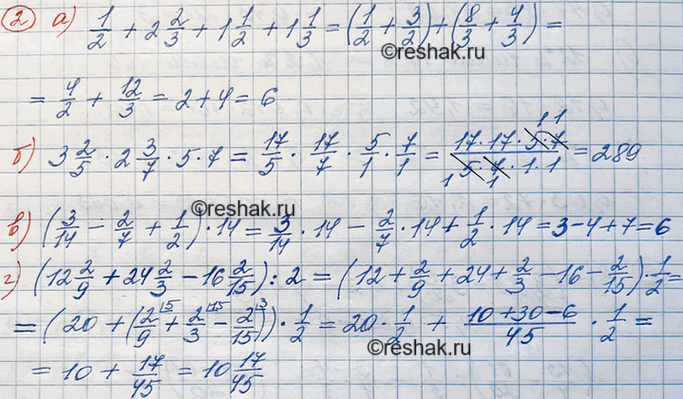 2 а) 1/2 + 2 2/3 + 1 1/2 + 1 1/3 = (1/2 + 3/2) + (8/3 + 4/3) =
©reshak.ru
= 4/2 + 12/3 = 2 + 4 = 6
б) 3 2/5 · 2 3/7 · 5 · 7 = 17/5 · 17/7 · 5/1 · 7/1 = 17·17·5·7/5·7·1·1 = 289
1 1
1 1
©reshak.ru
в) (3/14 − 2/7 + 1/2) · 14 = 3/14 · 14 − 2/7 · 14 + 1/2 · 14 = 3 − 4 + 7 = 6
г) (12 2/9 + 24 2/3 − 16 2/15) : 2 = (12 + 2/9 + 24 + 2/3 − 16 − 2/15) · 1/2 =
= (20 + (2/9 ⁵ + 2/3 ¹⁵ − 2/15 ³)) · 1/2 = 20 · 1/2 + 10+30−6/45 · 1/2 =
©reshak.ru
= 10 + 17/45 = 10 17/45